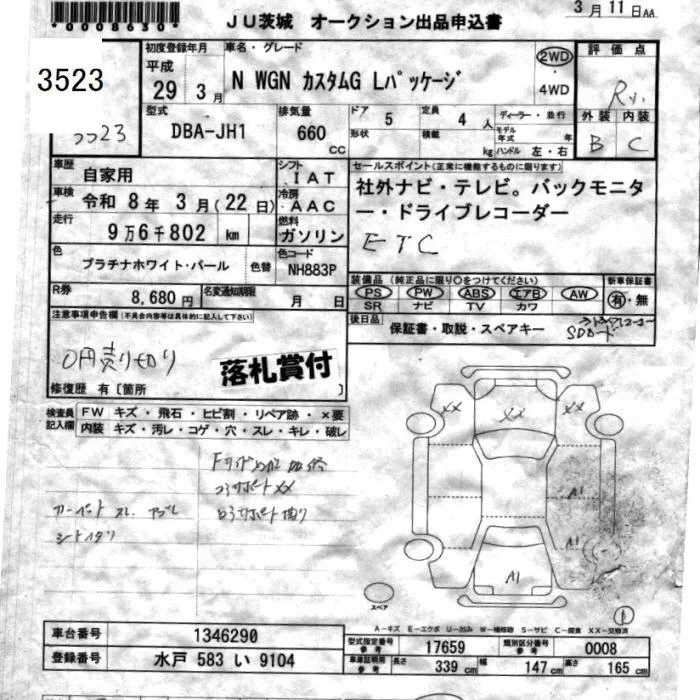 *0008630*
JU茨城 オークション出品申込書
3月11日AA
3523
初度登録年月
平成
29 3月
車名・グレード
N WGN カスタムG Lパッケージ
2WD
・
4WD
評価点
外装 内装
B C
型式
DBA-JH1
排気量
660 CC
ドア 5
形状
定員 4 人
積載 kg
ディーラー・並行
モデル年式 年
ハンドル 左・右
車歴
自家用
シフト
IAT
車検
令和 8年 3月(22日)
冷房
AAC
走行
9万6千802 km
燃料
ガソリン
色
プラチナホワイト・パール
色替
色コード
NH883P
R券
8,680円
名変通知期限
月 日
セールスポイント(正常に機能するものに限ります)
社外ナビ・テレビ。バックモニタ
ー・ドライブレコーダー
ETC
装備品(純正品に限り○をつけてください)
PS PW ABS エアB AW
SR ナビ TV カワ
新車保証書
有・無
後日品
保証書・取説・スペアキー
注意事項申告欄(不具合内容等は具体的に記入して下さい)
0円売り切り
落札賞付
修復歴 有〔箇所 〕
検査員記入欄
FW キズ・飛石・ヒビ割・リペア跡・×要
内装 キズ・汚レ・コゲ・穴・スレ・キレ・破レ
シートハタリ
XX
XX
XX
A1
A1
A1
スペア
A−キズ E−エクボ U−凹み W−補修跡 S−サビ C−腐食 XX−交換済
車台番号
1346290
登録番号
水戸 583 い 9104
型式指定番号
参考
17659
類別区分番号
参考
0008
車庫証明用
参考
長さ 339 cm
幅 147 cm
高さ 165 cm